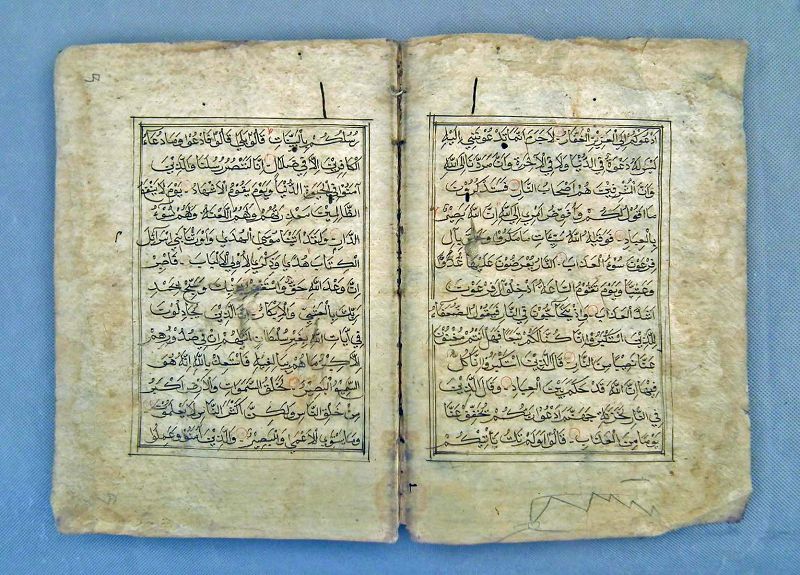 ادعوكم الى العزيز الغفار لا جرم انما تدعونني اليه
ليس له دعوة في الدنيا ولا في الاخرة وان مردنا الى الله
وان المسرفين هم اصحاب النار فستذكرون
ما اقول لكم وافوض امري الى الله ان الله بصير
بالعباد فوقيه الله سيئات ما مكروا وحاق بآل
فرعون سوء العذاب النار يعرضون عليها غدوا
وعشيا ويوم تقوم الساعة ادخلوا آل فرعون
اشد العذاب واذ يتحاجون في النار فيقول الضعفاء
للذين استكبروا انا كنا لكم تبعا فهل انتم مغنون
عنا نصيبا من النار قال الذين استكبروا انا كل
فيها ان الله قد حكم بين العباد وقال الذين
في النار لخزنة جهنم ادعوا ربكم يخفف عنا
يوما من العذاب قالوا اولم تك تأتيكم
رسلكم بالبينات قالوا بلى قالوا فادعوا وما دعاء
الكافرين الا في ضلال انا لننصر رسلنا والذين
آمنوا في الحيوة الدنيا ويوم يقوم الاشهاد يوم لا ينفع
الظالمين معذرتهم ولهم اللعنة ولهم سوء
الدار ولقد آتينا موسى الهدى واورثنا بني اسرائيل
الكتاب هدى وذكرى لاولي الالباب فاصبر
ان وعد الله حق واستغفر لذنبك وسبح بحمد
ربك بالعشي والابكار ان الذين يجادلون
في آيات الله بغير سلطان اتيهم ان في صدورهم
الا كبر ما هم ببالغيه فاستعذ بالله انه هو
السميع البصير لخلق السموات والارض اكبر
من خلق الناس ولكن اكثر الناس لا يعلمون
وما يستوي الاعمى والبصير والذين آمنوا وعملوا